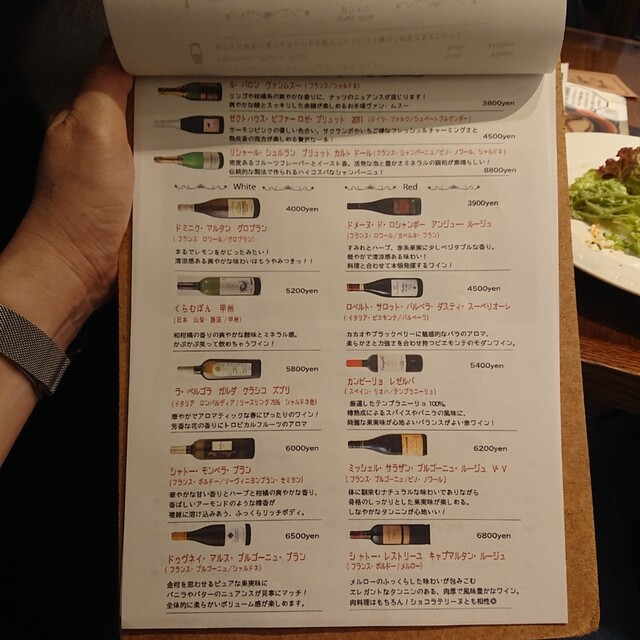 ル・バロン ヴァンムスー (フランス/シャルドネ)
リンゴや柑橘系の爽やかな香りに、ナッツのニュアンスが混じります!
爽やかな酸とスッキリした余韻が楽しめるお手頃ヴァン・ムスー
3800yen
ゼクトハウス・ビファー ロゼ・ブリュット 2011 (ドイツ・ファルツ/シュペートブルグンダー)
サーモンピンクの優しい色合い。サクランボやいちご様なフレッシュ&チャーミングさと
熟成香の両方が楽しめる贅沢な一本!
4500yen
リシャール・シュルラン ブリュット カルト ドール (フランス・シャンパーニュ/ピノ・ノワール、シャルドネ)
密度あるフルーツフレーバーとイースト香。活発な泡と豊かさとミネラルの調和が素晴らしい!
伝統的な製法で作られるハイコスパなシャンパーニュ!
8800yen
White
4000yen
ドミニク・マルタン グロプラン
(フランス ロワール/グロプラン)
まるでレモンをかじったみたい!
清涼感ある爽やかな味わいはもうやみつきっ!!
5200yen
くらむぼん 甲州
(日本 山梨・勝沼/甲州)
和柑橘の香りの爽やかな酸味とミネラル感。
かぷかぷ笑って飲めちゃうワイン!
5800yen
ラ・ペルゴラ ガルダ クラシコ ズブリ
(イタリア ロンバルディア/リースリング75% シャルドネ他)
華やかでアロマティックな春にぴったりのワイン!
芳香な花の香りにトロピカルフルーツのアロマ
6000yen
シャトー・モンペラ・ブラン
(フランス・ボルドー/ソーヴィニヨンブラン・セミヨン)
華やかな甘い香りとハーブと柑橘の爽やかな香り、
香ばしいアーモンドのような樽香が
複雑に溶け込みあう、ふっくらリッチボディ。
6500yen
ドゥヴネイ・マルス・ブルゴーニュ・ブラン
(フランス・ブルゴーニュ/シャルドネ)
金柑を思わせるピュアな果実味に
バニラやバターのニュアンスが見事にマッチ!
全体的に柔らかいボリューム感が楽しめます。
Red
3900yen
ドメーヌ・ド・ロシャンボー アンジュー・ルージュ
(フランス・ロワール/カベルネ・フラン)
すみれとハーブ、赤系果実に少しベジタブルな香り。
軽やかで清涼感ある味わい!
料理と合わせて本領発揮するワイン!
4500yen
ロベルト・サロット・バルベラ・ダスティ・スーペリオーレ
(イタリア・ピエモンテ/バルベーラ)
カカオやブラックベリーに魅惑的なバラのアロマ。
柔らかさと力強さを合わせ持つピエモンテのモダンワイン。
5400yen
カンピーリョ レゼルバ
(スペイン・リオハ/テンプラニーリョ)
厳選したテンプラニーリョ100%。
樽熟成によるスパイスやバニラの風味に、
綺麗な果実味が心地よいバランスがよい赤ワイン!
6200yen
ミッシェル・サラザン・ブルゴーニュ・ルージュ V・V
(フランス・ブルゴーニュ/ピノ・ノワール)
体に馴染むナチュラルな味わいでありながら
骨格のしっかりとした果実味が楽しめる。
しなやかなタンニンが心地いい!
6800yen
シャトー・レストリーユ キャプマルタン・ルージュ
(フランス・ボルドー/メルロー)
メルローのふっくらした味わいが包みこむ
エレガントなタンニンのある、肉厚で風味豊かなワイン。
肉料理はもちろん!ショコラテリーヌとも相性◎